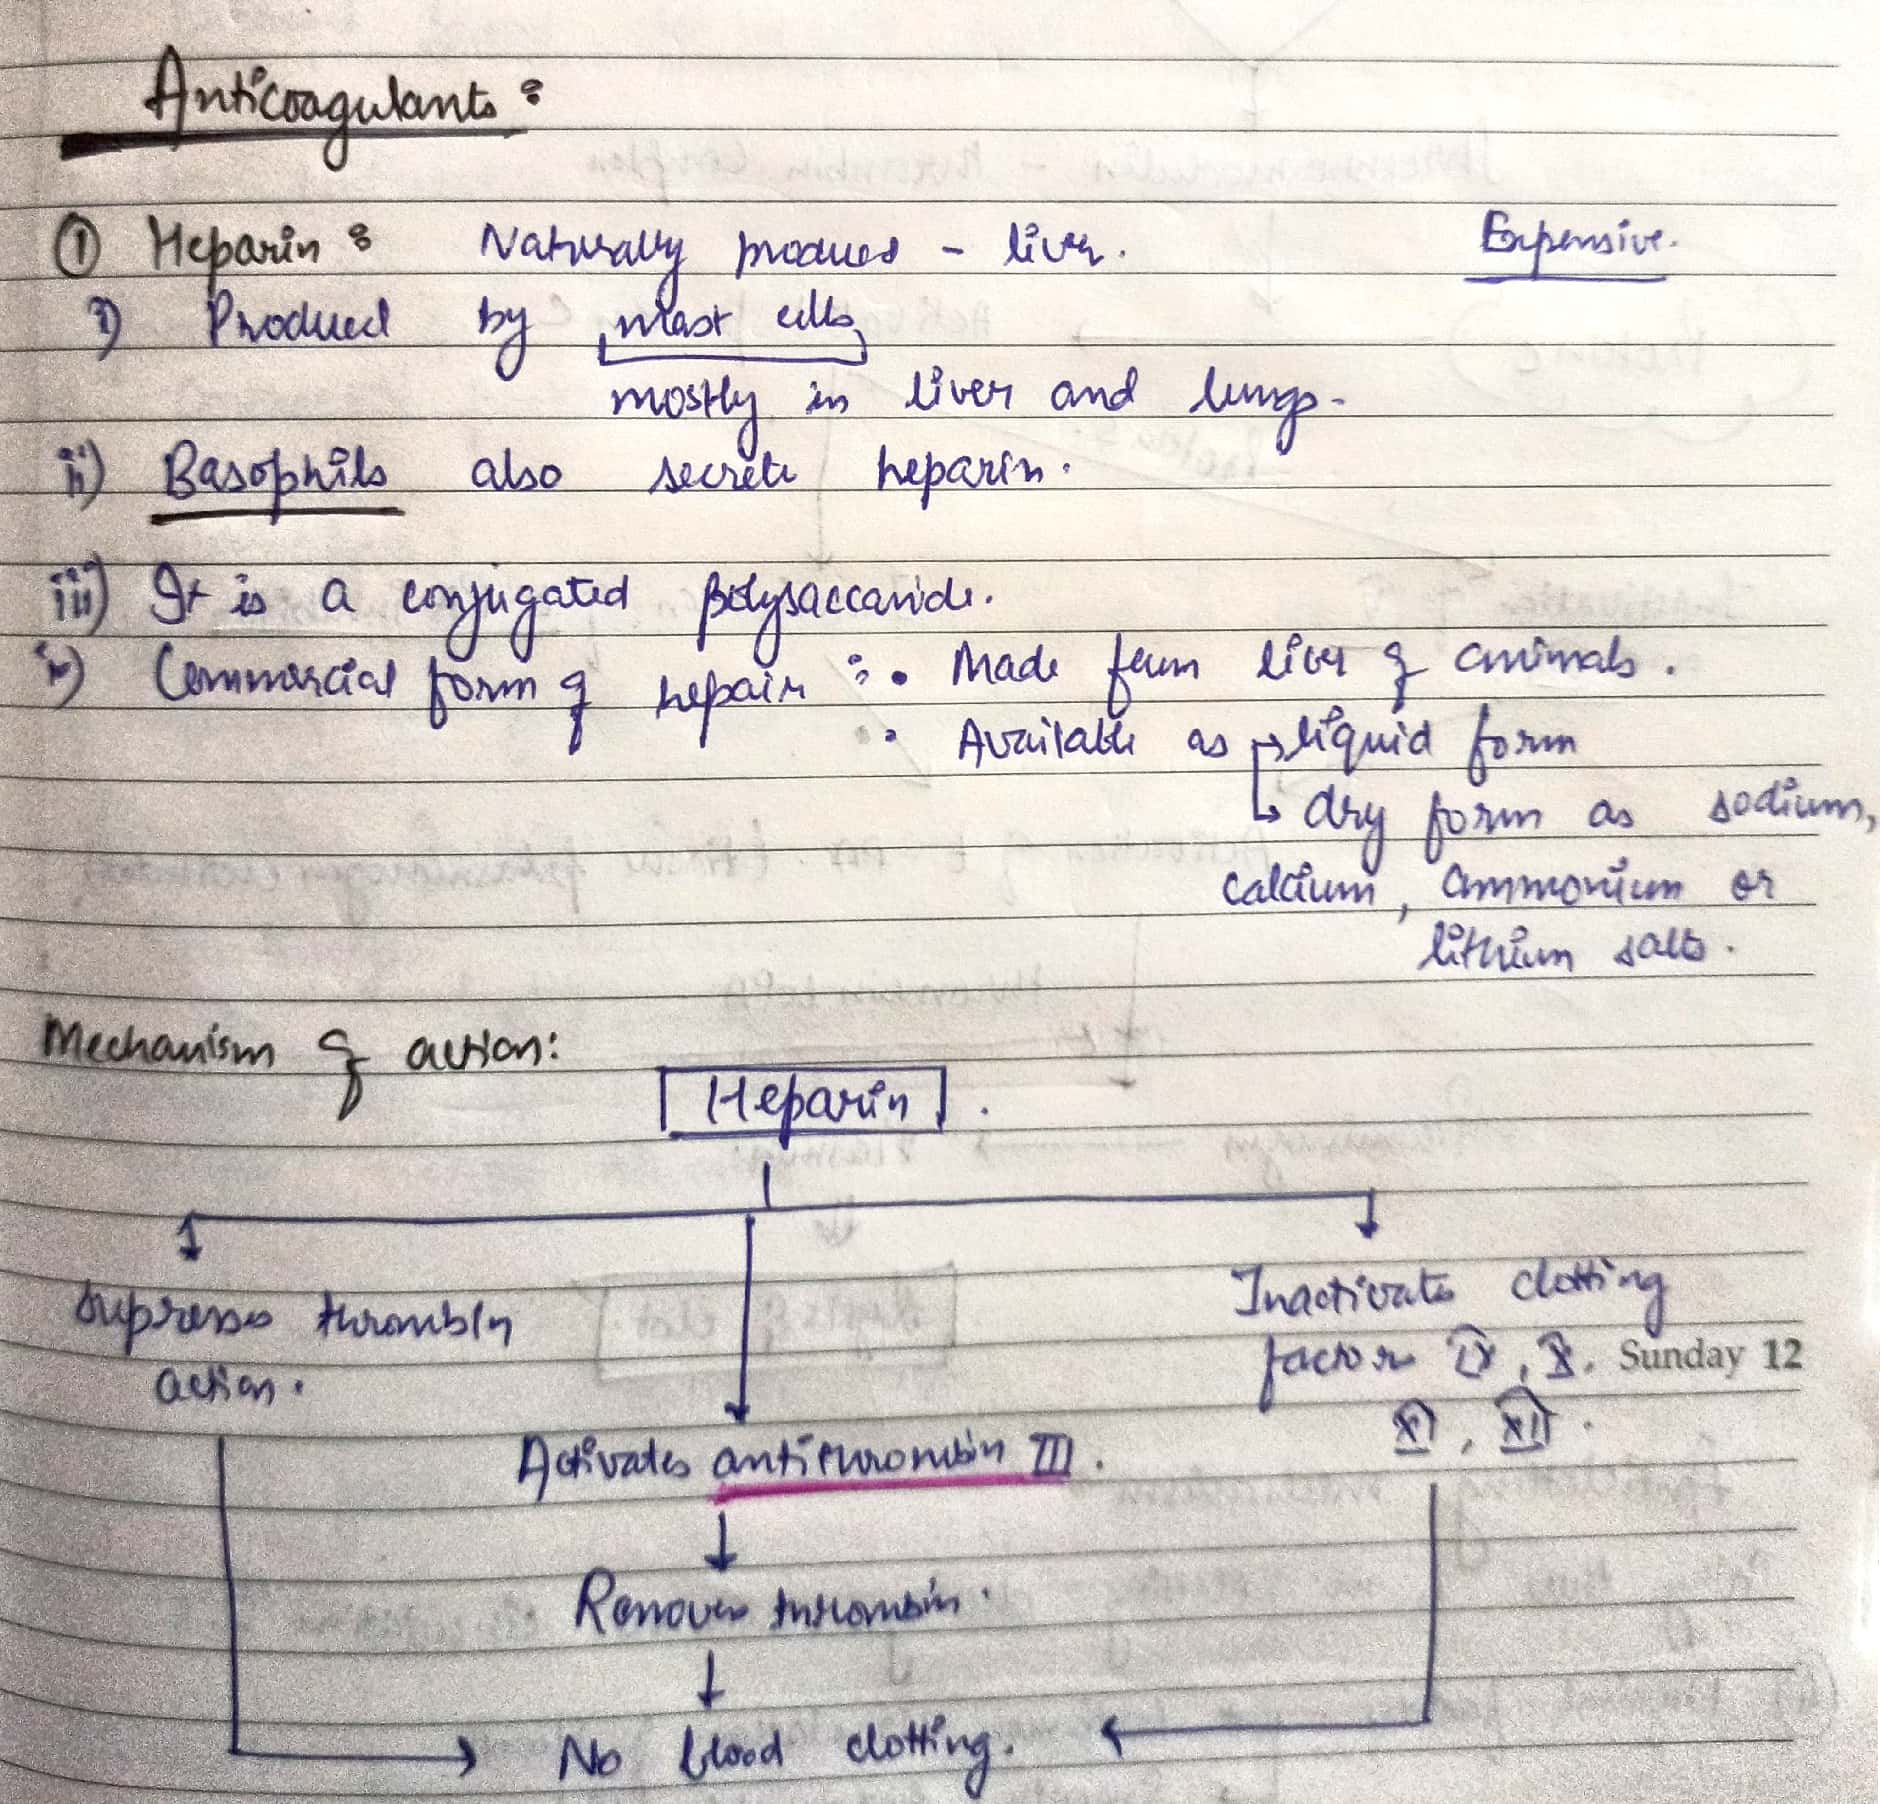 Anticoagulants :
① Heparin : Naturally produces - liver. Expensive.
i) Produced by mast cells
mostly in liver and lungs.
ii) Basophils also secrete heparin.
iii) It is a conjugated polysaccaride.
iv) Commercial form of hepain : • Made from liver of animals.
• Available as → liquid form
↳ dry form as sodium,
calcium, ammonium or
lithium salts.
Mechanism of action:
Heparin.
Supresses thrombin
action.
Inactivates clotting
factors IX, X. Sunday 12
XI, XII.
Activates antithrombin III.
↓
Removes thrombin.
↓
No blood clotting.